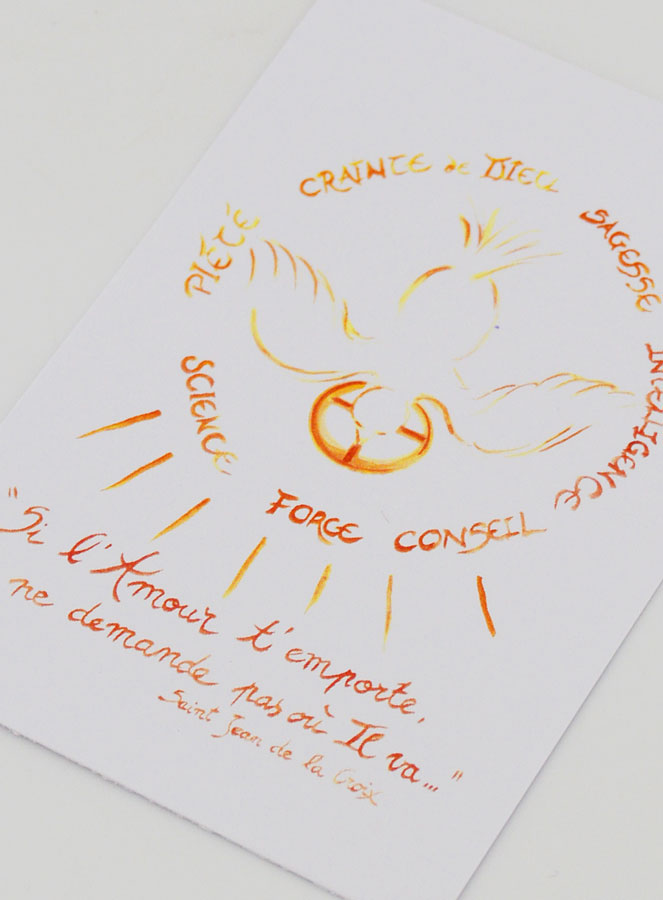 CRAINTE de DIEU
SAGESSE
INTELLIGENCE
CONSEIL
FORCE
SCIENCE
PIÉTÉ
"Si l'Amour t'emporte,
ne demande pas où Il va..."
Saint Jean de la Croix